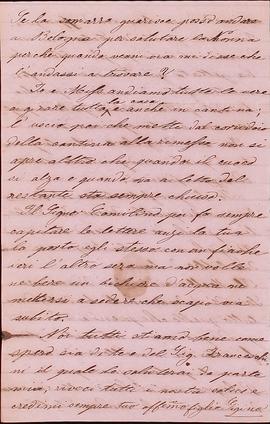 Se la somarra guarisce poss'andare
a Bologna per salutare la Nonna
perché quando venni via mi disse che
l'andassi a trovare
Io e andiamo tutte le sere
a girare tutta la casa e anche in cantina;
l'uscio poi che mette dal corridoio
della cantina alla rimessa non si
apre altro che quando il cuoco
si alza e quando va a letto del
restante sta sempre chiuso.
Il Sigr. fa sempre
capitare le lettere anzi la tua
la portò egli stesso con un fiacre
ieri l'altro sera ma non volle
né bere un bicchiere d'acqua né
mettersi a sedere che scapò via
subito.
Noi tutti stiamo bene come
spero sia di te e del Sig. Franceschi-
ni il quale lo saluterai da parte
mia; ricevi tutti i nostri saluti e
credimi sempre tuo affmo figlio